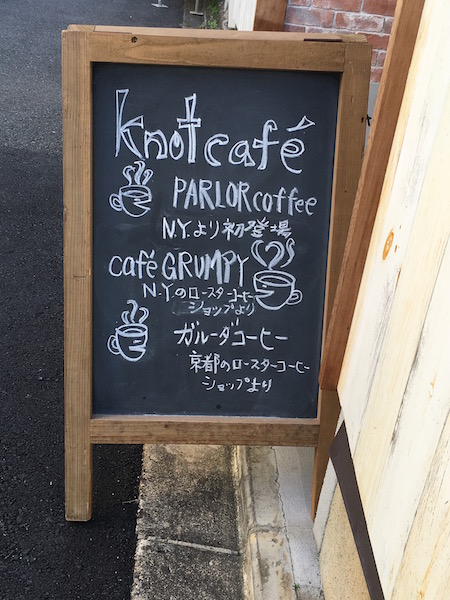 knot café
PARLOR coffee
N.Y.より初登場
café GRUMPY
N.Yのロースターコーヒー
ショップより
ガルーダコーヒー
京都のロースターコーヒー
ショップより